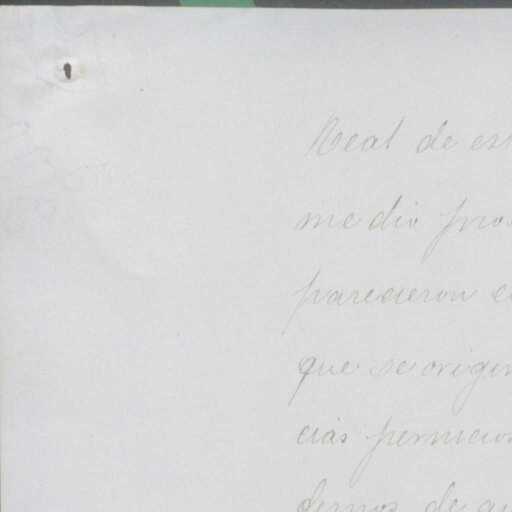 Real de est
medio pro
parecieron e
que se origin
cias pernicio
demos de qu